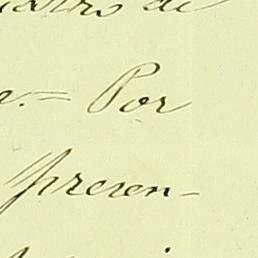 de
e.= Por
presen-